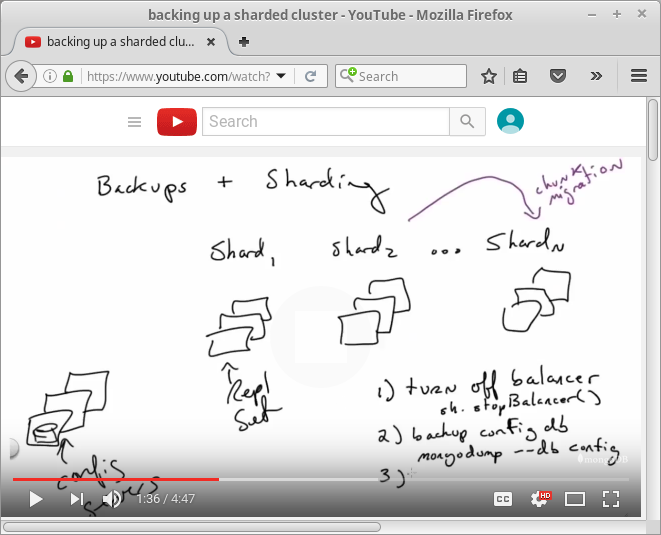 backing up a sharded cluster - YouTube - Mozilla Firefox
backing up a sharded clu...
https://www.youtube.com/watch?
Search
Search
Backups + Sharding
chunk
migration
Shard1 Shard2 ... ShardN
Repl
Set
1) turn off balancer
sh.stopBalancer()
2) backup config db
mongodump --db config
3)
config
servers
1:36 / 4:47
CC
HD